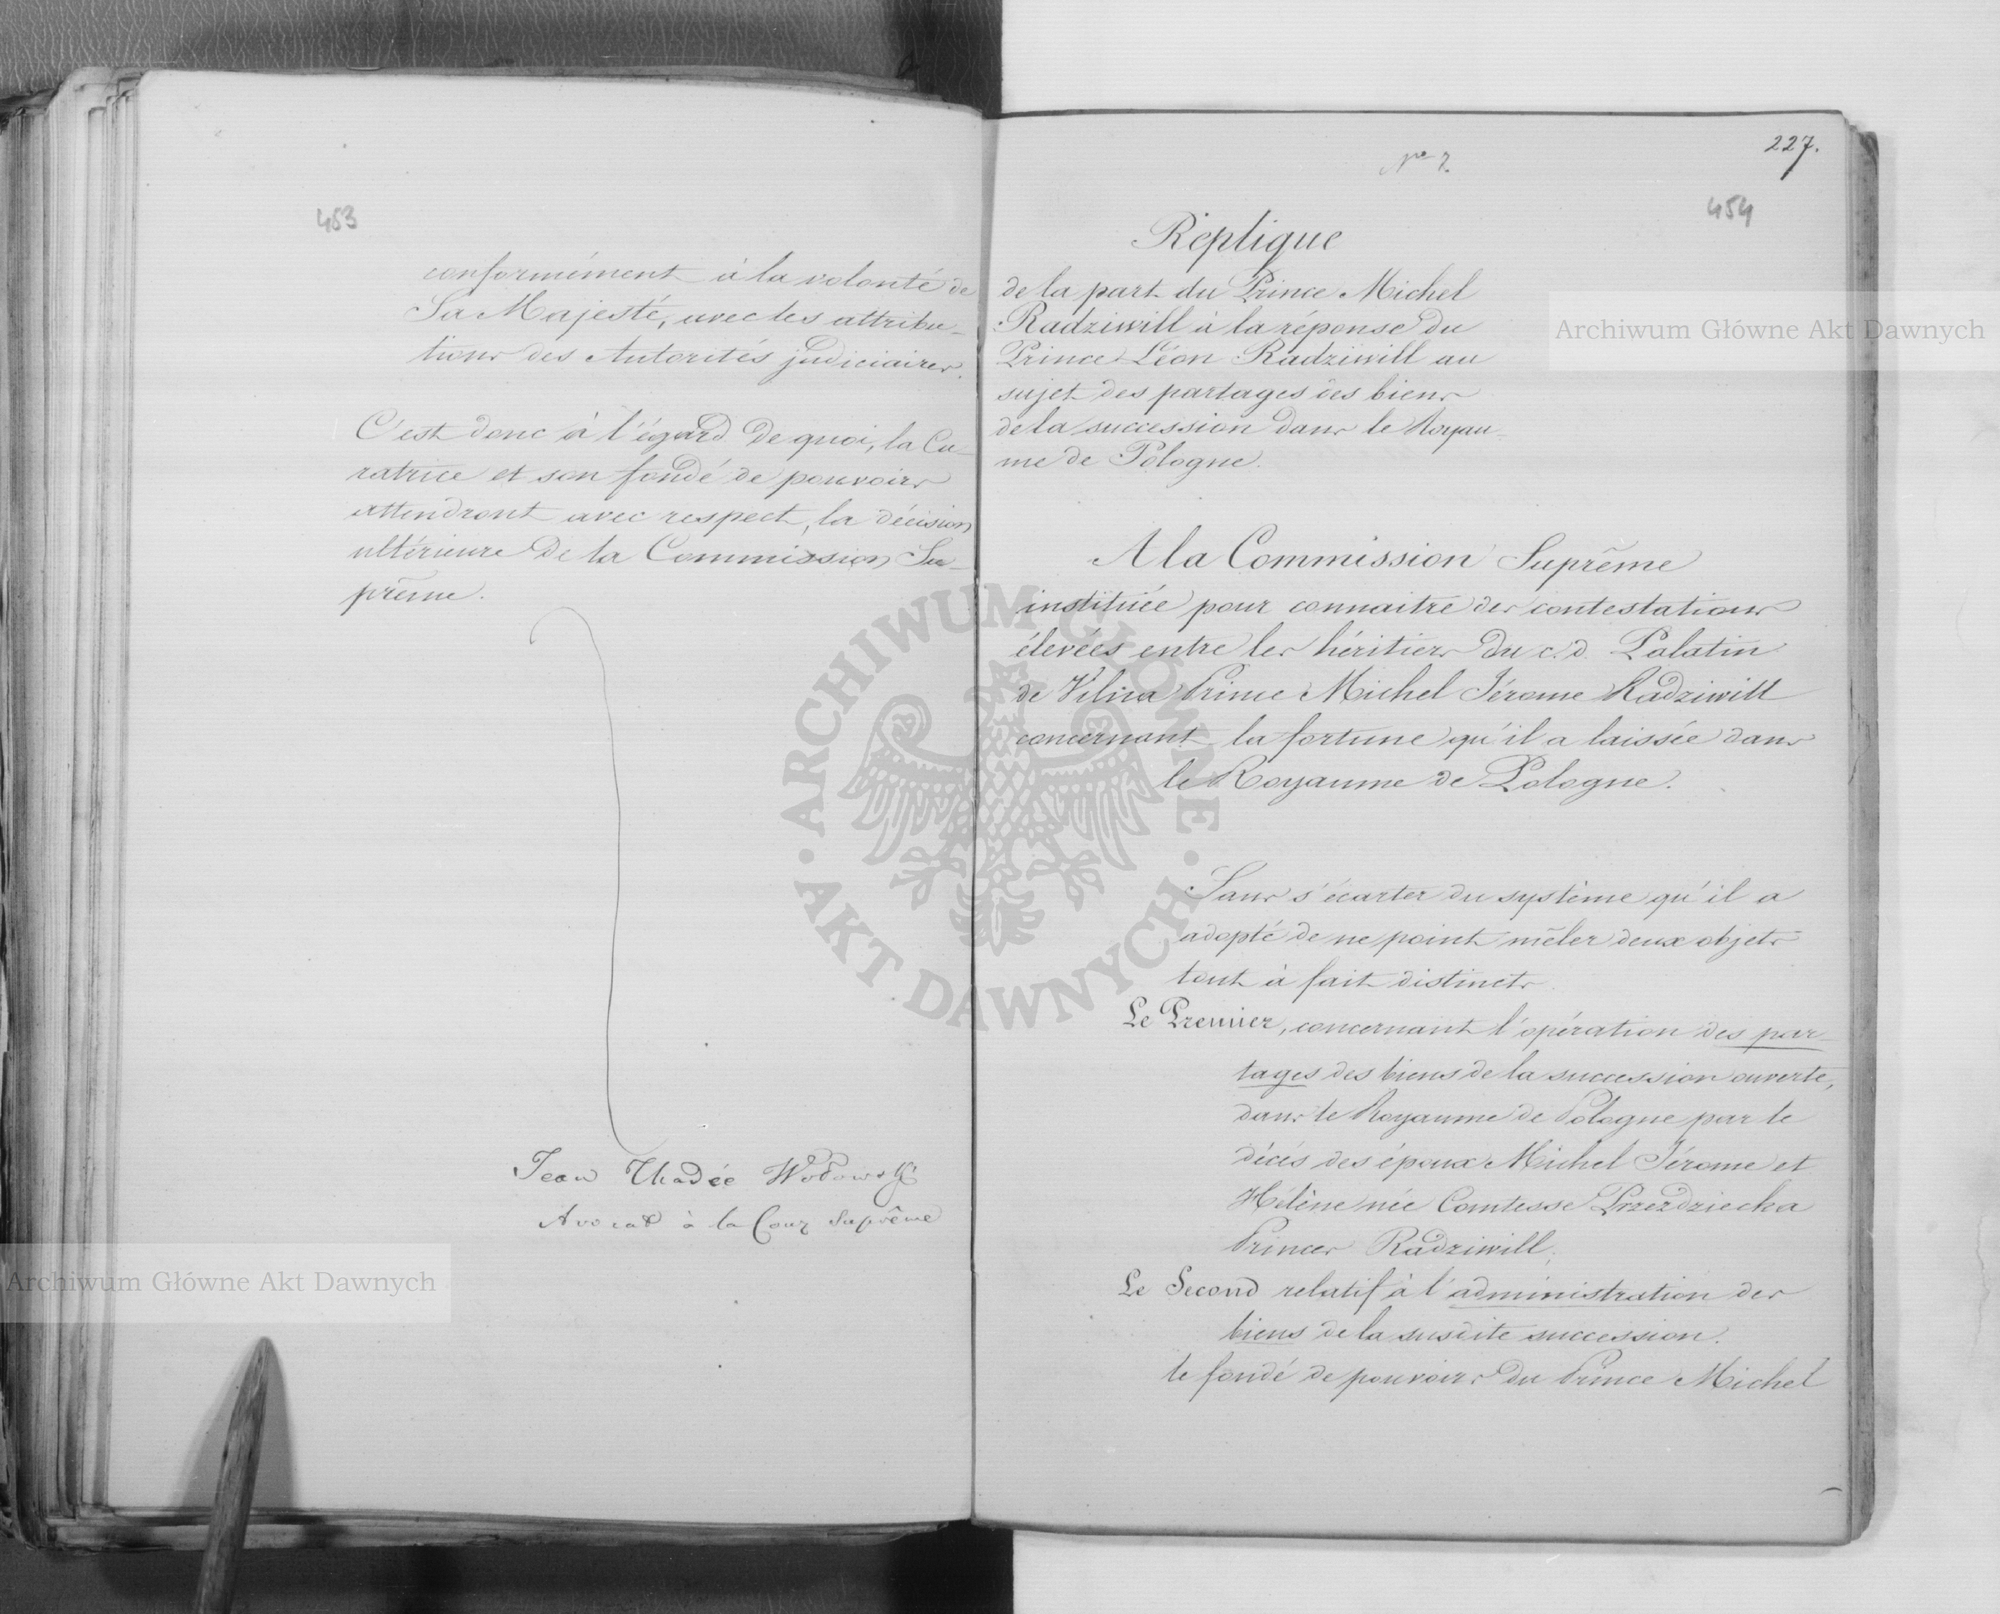 453
conformément à la volonté de
Sa Majesté, avec les attribu-
tions des Autorités judiciaires.
C'est donc à l'égard de quoi, la Cu-
ratrice et son fondé de pouvoirs
attendront avec respect, la décision
ultérieure de la Commission Su-
prême.
Jean Thadée Wodowski
Avocat à la Cour Suprême
227.
No 7.
454
Réplique
de la part du Prince Michel
Radziwill à la réponse du
Prince Léon Radziwill au
sujet des partages des biens
de la succession dans le Royau-
me de Pologne.
A la Commission Suprême
instituée pour connaitre des contestations
élevées entre les héritiers du c.d. Palatin
de Vilna Prince Michel Jérome Radziwill
concernant la fortune qu'il a laissée dans
le Royaume de Pologne.
Sans s'écarter du système qu'il a
adopté de ne point mêler deux objets
tout à fait distincts.
Le Premier, concernant l'opération des par-
tages des biens de la succession ouverte,
dans le Royaume de Pologne par le
décés des époux Michel Jérome et
Hélène née Comtesse Przezdziecka
Princes Radziwill,
Le Second relatif à l'administration des
biens de la susdite succession.
le fondé de pouvoirs du Prince Michel
Archiwum Główne Akt Dawnych
Archiwum Główne Akt Dawnych
· ARCHIWUM GŁÓWNE · AKT DAWNYCH